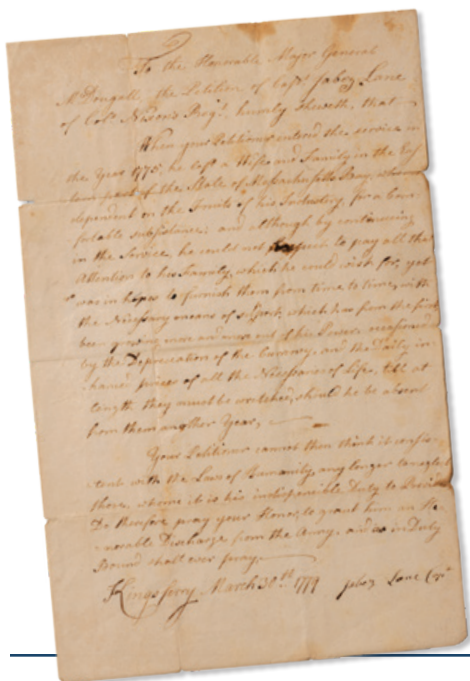 To the Honorable Major General
McDougall, the Petition of Capt. Jabez Lane
of Colo. Nixon's Regt. humbly sheweth, that
When your Petitioner entered the service in
the Year 1775, he left a Wife and Family in the Eas
tern part of the State of Massachusetts Bay, whom
dependent on the Fruits of his Industry, for a com
fortable subsistance; and although by continuing
in the Service, he could not to pay all the
Attention to his Family, which he could wish for, yet
was in hopes to furnish them from time to time, with
the Necessary means of support, which has from the first
been growing more and more out of his Power occasioned
by the Depreciation of the Currency, and the Daily in
hanced prices of all the Necessaries of Life, till at
length they must be wretched, should he be absent
from them another Year,
Your Petitioner cannot then think it consis
tent with the Laws of Humanity, any longer to neglect
those, whome it is his indispensible Duty to Provide
Do therefore pray your Honor, to grant him an Ho
norable Discharge from the Army, and as in Duty
Bound shall ever pray.
Kingsferry March 30th 1779 Jabez Lane Capt